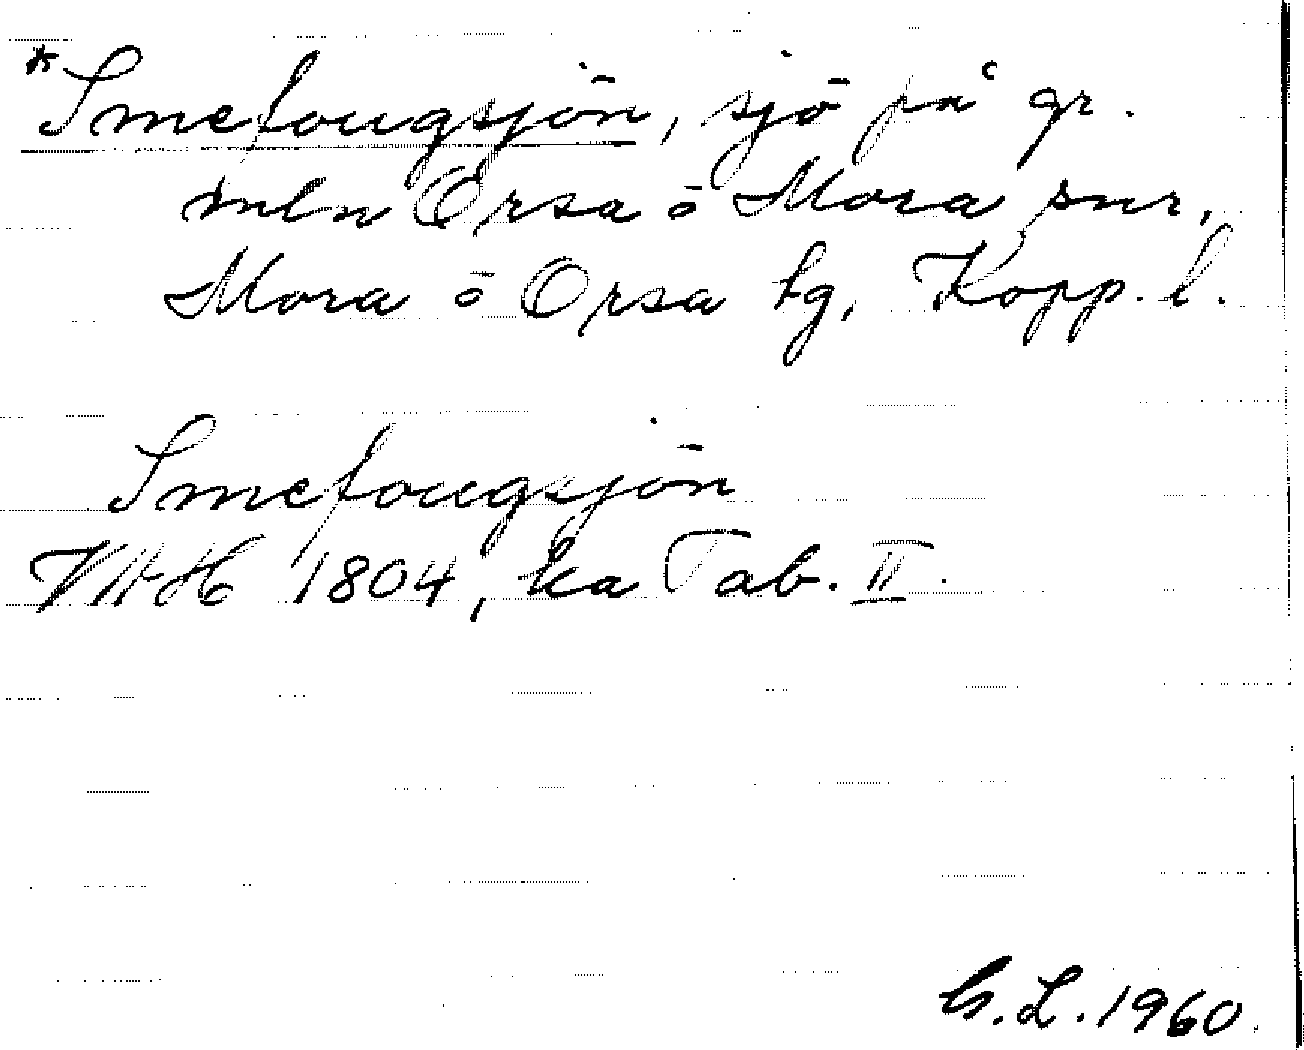 *Smefougsjön, sjö på gr.
mln Orsa o Mora snr,
Mora o Orsa tg, Kopp. l.
Smefougsjön
VAH 1804, ka Tab. II.
G. L. 1960.